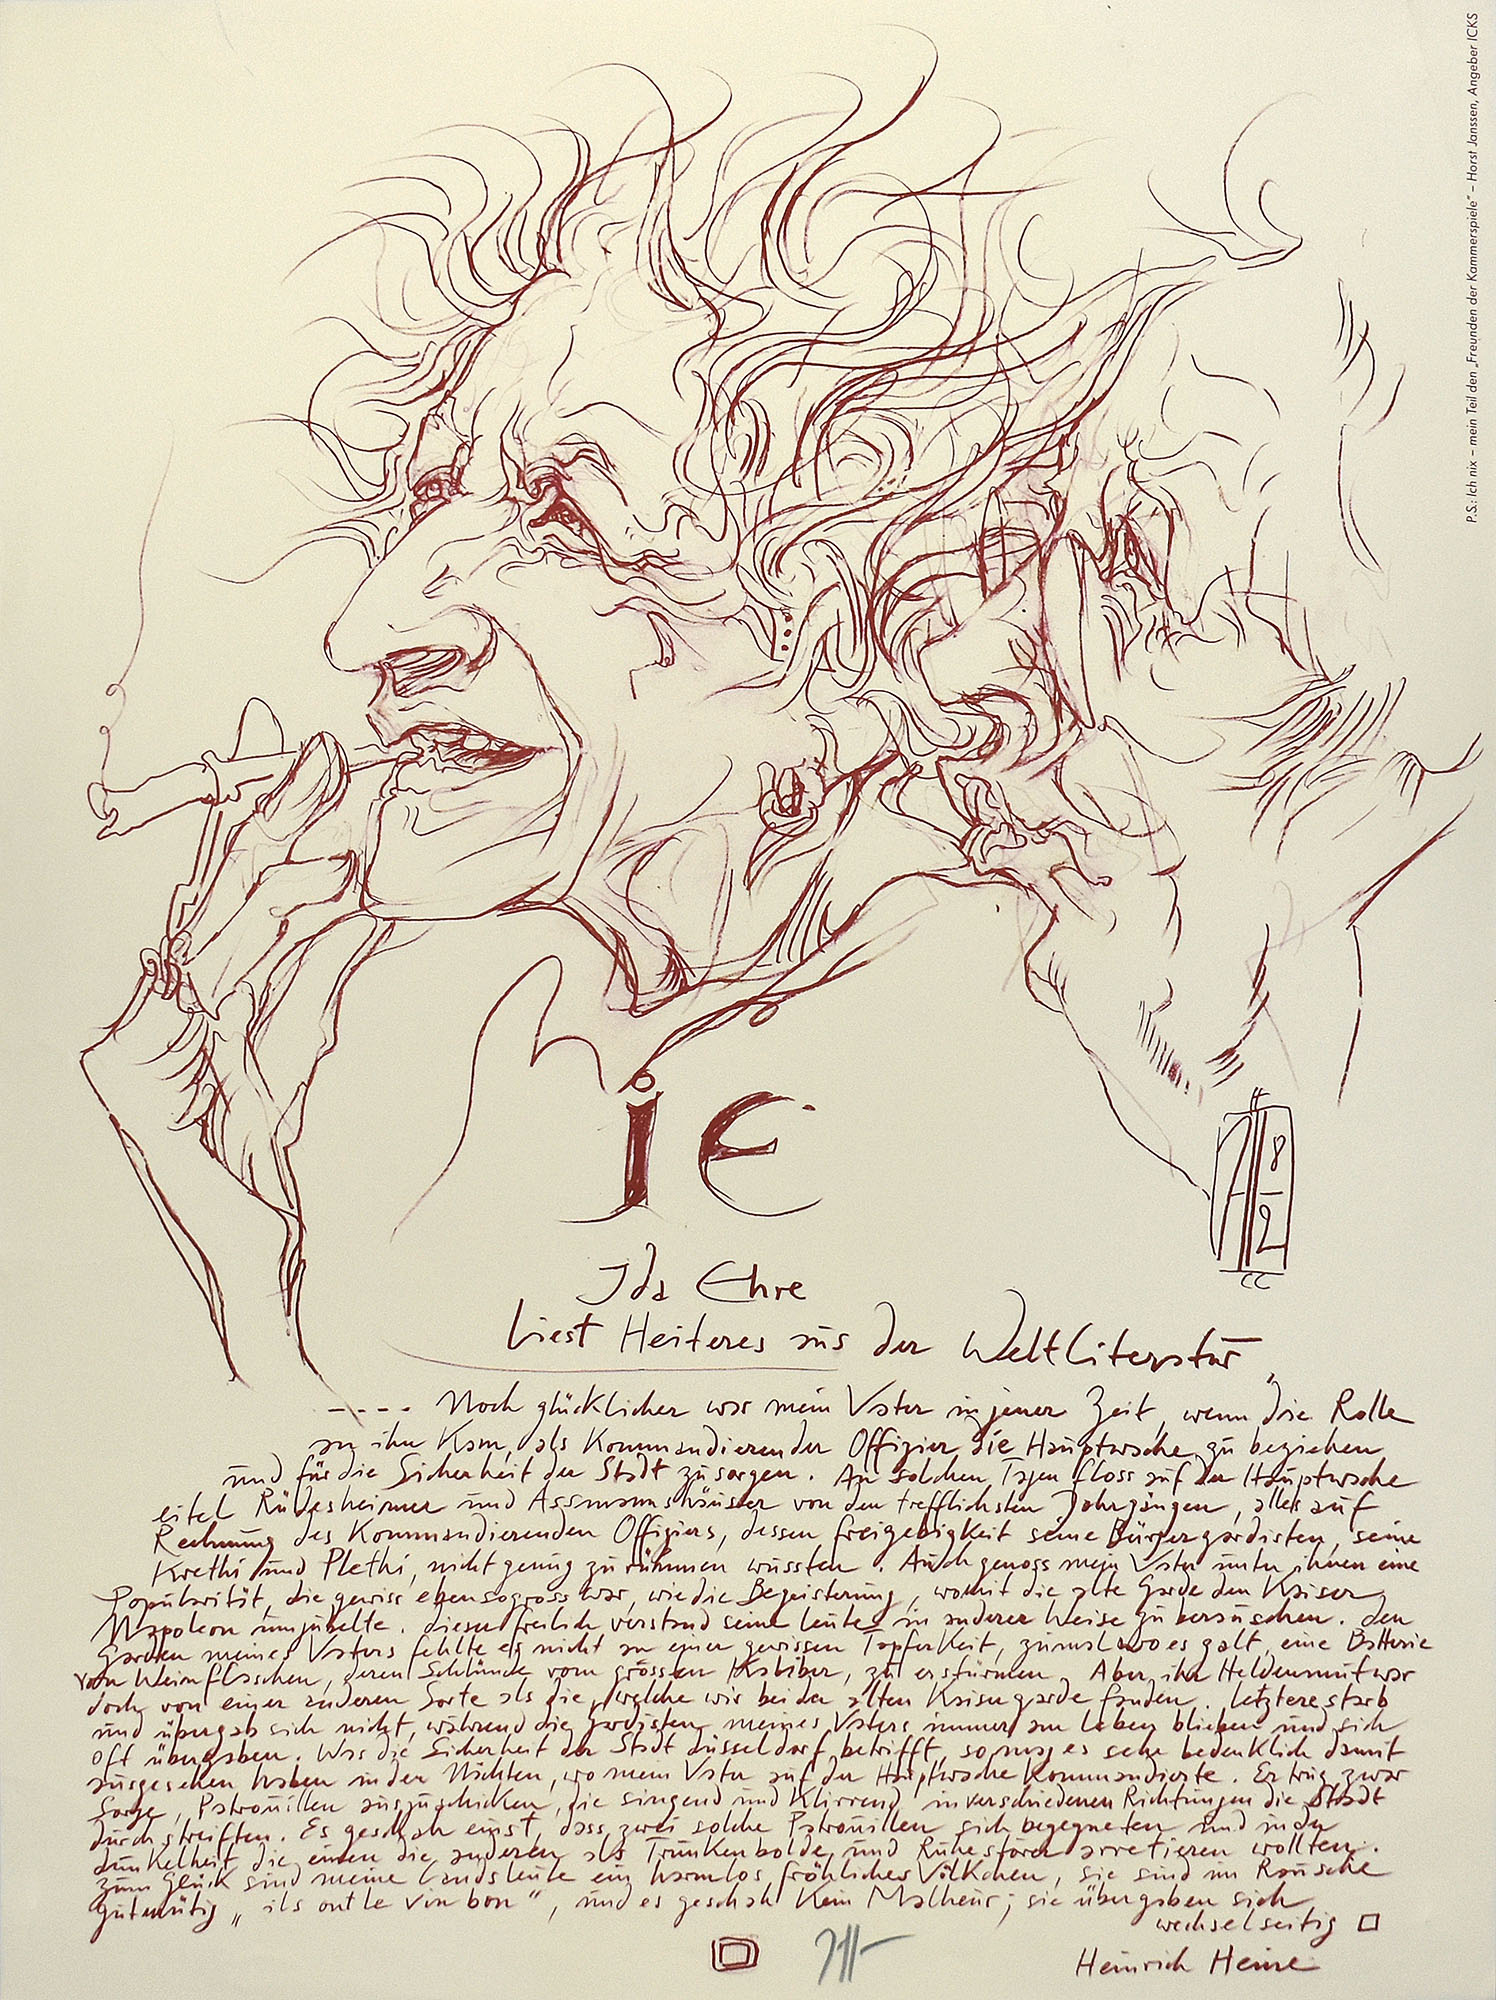 P.S.: Ich nix – mein Teil den „Freunden der Kammerspiele“ – Horst Janssen, Angeber ICKS
iE
8
2
Ida Ehre
Liest Heiteres aus der Weltliteratur
---- Noch glücklicher war mein Vater in jener Zeit, wenn die Rolle
an ihn kam, als Kommandierender Offizier die Hauptwache zu beziehen
und für die Sicherheit der Stadt zu sorgen. An solchen Tagen floss auf der Hauptwache
eitel Rüdesheimer und Assmannshäuser von den trefflichsten Jahrgängen, alles auf
Rechnung des Kommandierenden Offiziers, dessen freigebigkeit seine Bürgergardisten, seine
Krethi und Plethi, nicht genug zu rühmen wussten. Auch genoss mein Vater unter ihnen eine
Popularität, die gewiss ebensogross war, wie die Begeisterung, womit die alte Garde den Kaiser
Napoleon umjubelte. dieser freilich verstand seine leute in anderer Weise zu berauschen. den
Garden meines Vaters fehlte es nicht an einer gewissen Tapferkeit, zumal wo es galt, eine Batterie
von Weinflaschen, deren Schlünde vom grössten Kaliber, zu erstürmen. Aber ihr Heldenmut war
doch von einer anderen Sorte als die, welche wir bei der alten Kaisergarde fanden. letztere starb
und übergab sich nicht, während die gardisten meines Vaters immer am Leben blieben und sich
oft übergaben. Was die Sicherheit der Stadt düsseldorf betrifft, so mag es sehr bedenklich damit
ausgesehen haben in den Nächten, wo mein Vater auf der Hauptwache kommandierte. Er trug zwar
Sorge, Patrouillen auszuschicken, die singend und klirrend in verschiedenen Richtungen die Stadt
durchstreiften. Es geschah einst, dass zwei solche Patrouillen sich begegneten und in der
dunkelheit die einen die anderen als Trunkenbolde und Ruhestörer arretieren wollten.
zum Glück sind meine landsleute ein harmlos, fröhliches Völkchen, sie sind im Rausche
gutmütig „ils ont le vin bon“, und es geschah kein Malheur; sie übergaben sich
wechselseitig
Heinrich Heine